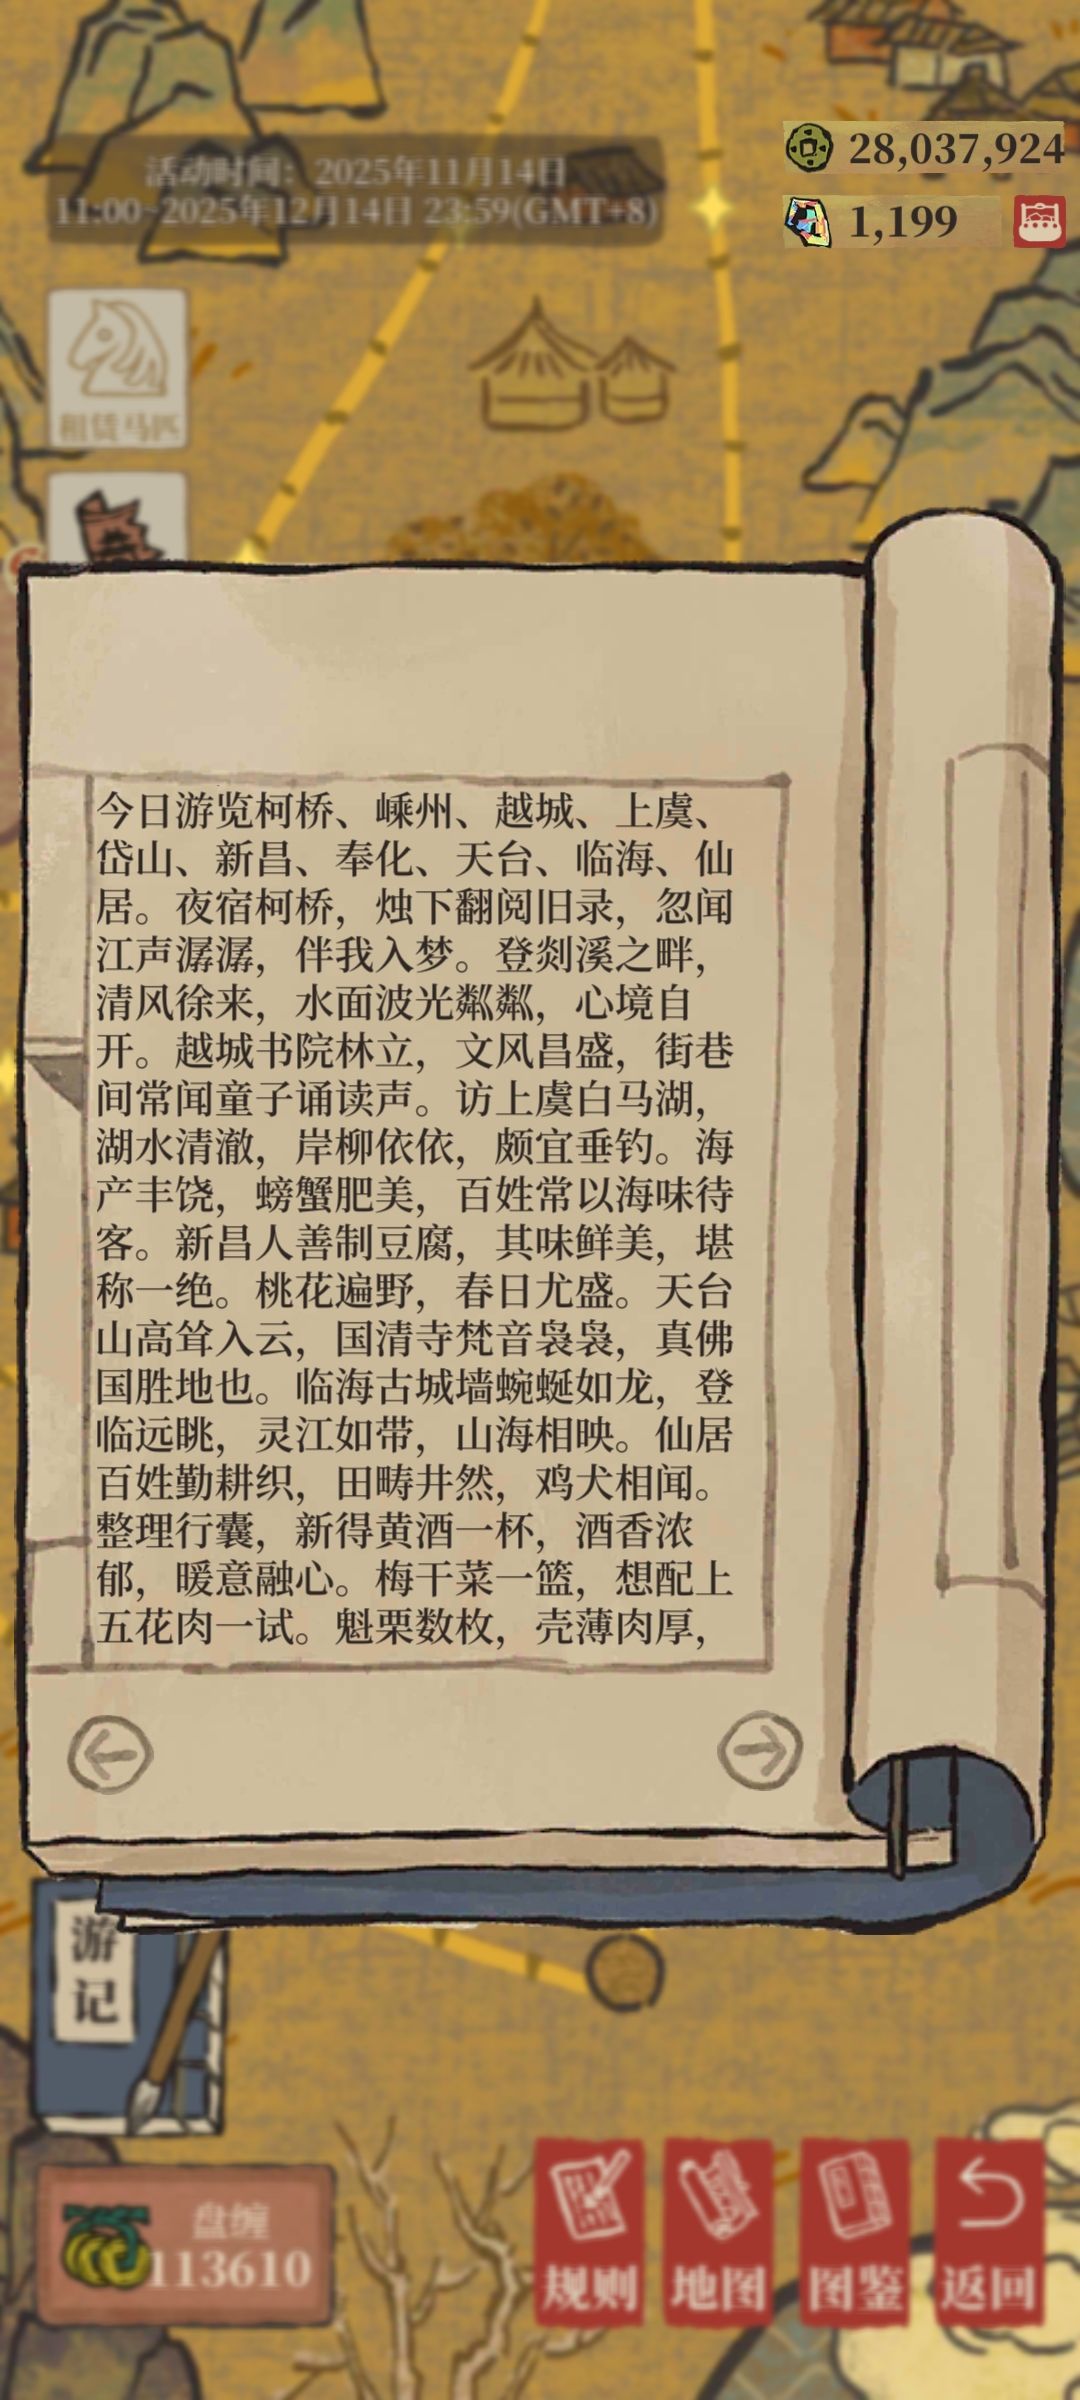 活动时间：2025年11月14日
11:00~2025年12月14日 23:59(GMT+8)
28,037,924
1,199
租赁马匹
今日游览柯桥、嵊州、越城、上虞、
岱山、新昌、奉化、天台、临海、仙
居。夜宿柯桥，烛下翻阅旧录，忽闻
江声潺潺，伴我入梦。登剡溪之畔，
清风徐来，水面波光粼粼，心境自
开。越城书院林立，文风昌盛，街巷
间常闻童子诵读声。访上虞白马湖，
湖水清澈，岸柳依依，颇宜垂钓。海
产丰饶，螃蟹肥美，百姓常以海味待
客。新昌人善制豆腐，其味鲜美，堪
称一绝。桃花遍野，春日尤盛。天台
山高耸入云，国清寺梵音袅袅，真佛
国胜地也。临海古城墙蜿蜒如龙，登
临远眺，灵江如带，山海相映。仙居
百姓勤耕织，田畴井然，鸡犬相闻。
整理行囊，新得黄酒一杯，酒香浓
郁，暖意融心。梅干菜一篮，想配上
五花肉一试。魁栗数枚，壳薄肉厚，
游记
盘缠
113610
规则
地图
图鉴
返回